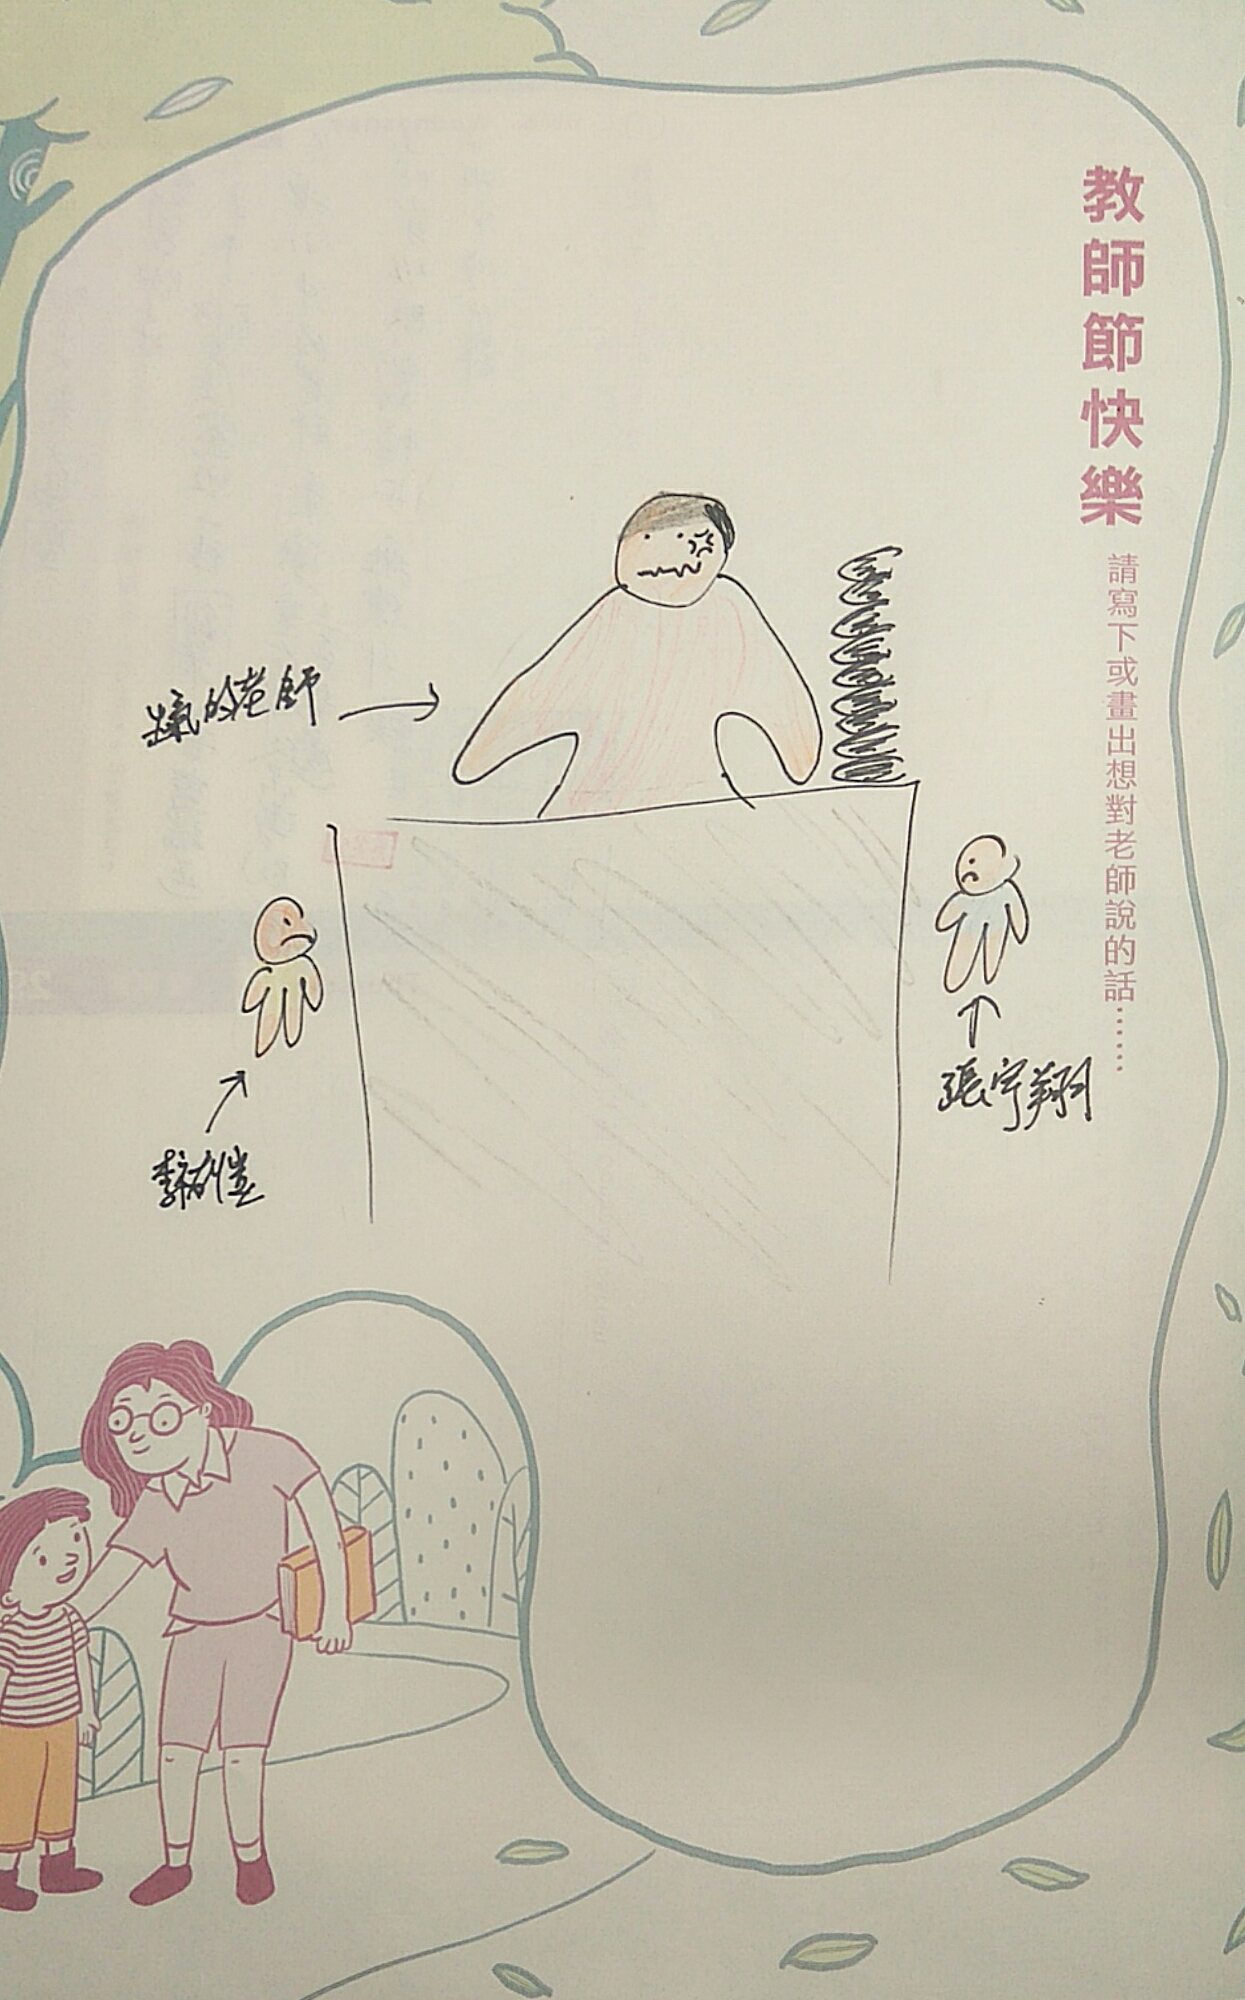 教師節快樂
請寫下或畫出想對老師說的話……
生氣的老師
張宇翔
李